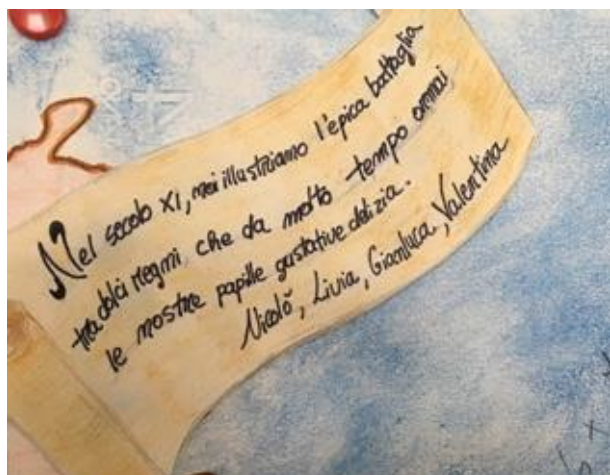 Nel secolo XI, noi illustriamo l'epica battaglia
tra dolci regni, che da molto tempo ormai
le nostre papille gustative delizia.
Nicolò, Livia, Gianluca, Valentina